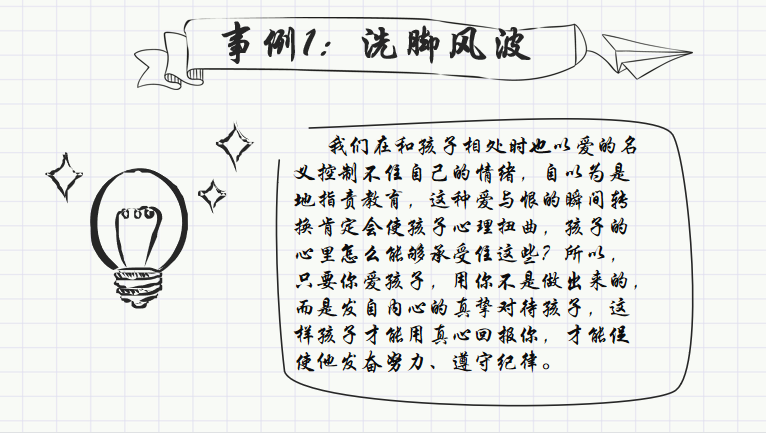 事例1：洗脚风波
我们在和孩子相处时也以爱的名
义控制不住自己的情绪，自以为是
地指责教育，这种爱与恨的瞬间转
换肯定会使孩子心理扭曲，孩子的
心里怎么能够承受住这些？所以，
只要你爱孩子，用你不是做出来的，
而是发自内心的真挚对待孩子，这
样孩子才能用真心回报你，才能促
使他发奋努力、遵守纪律。